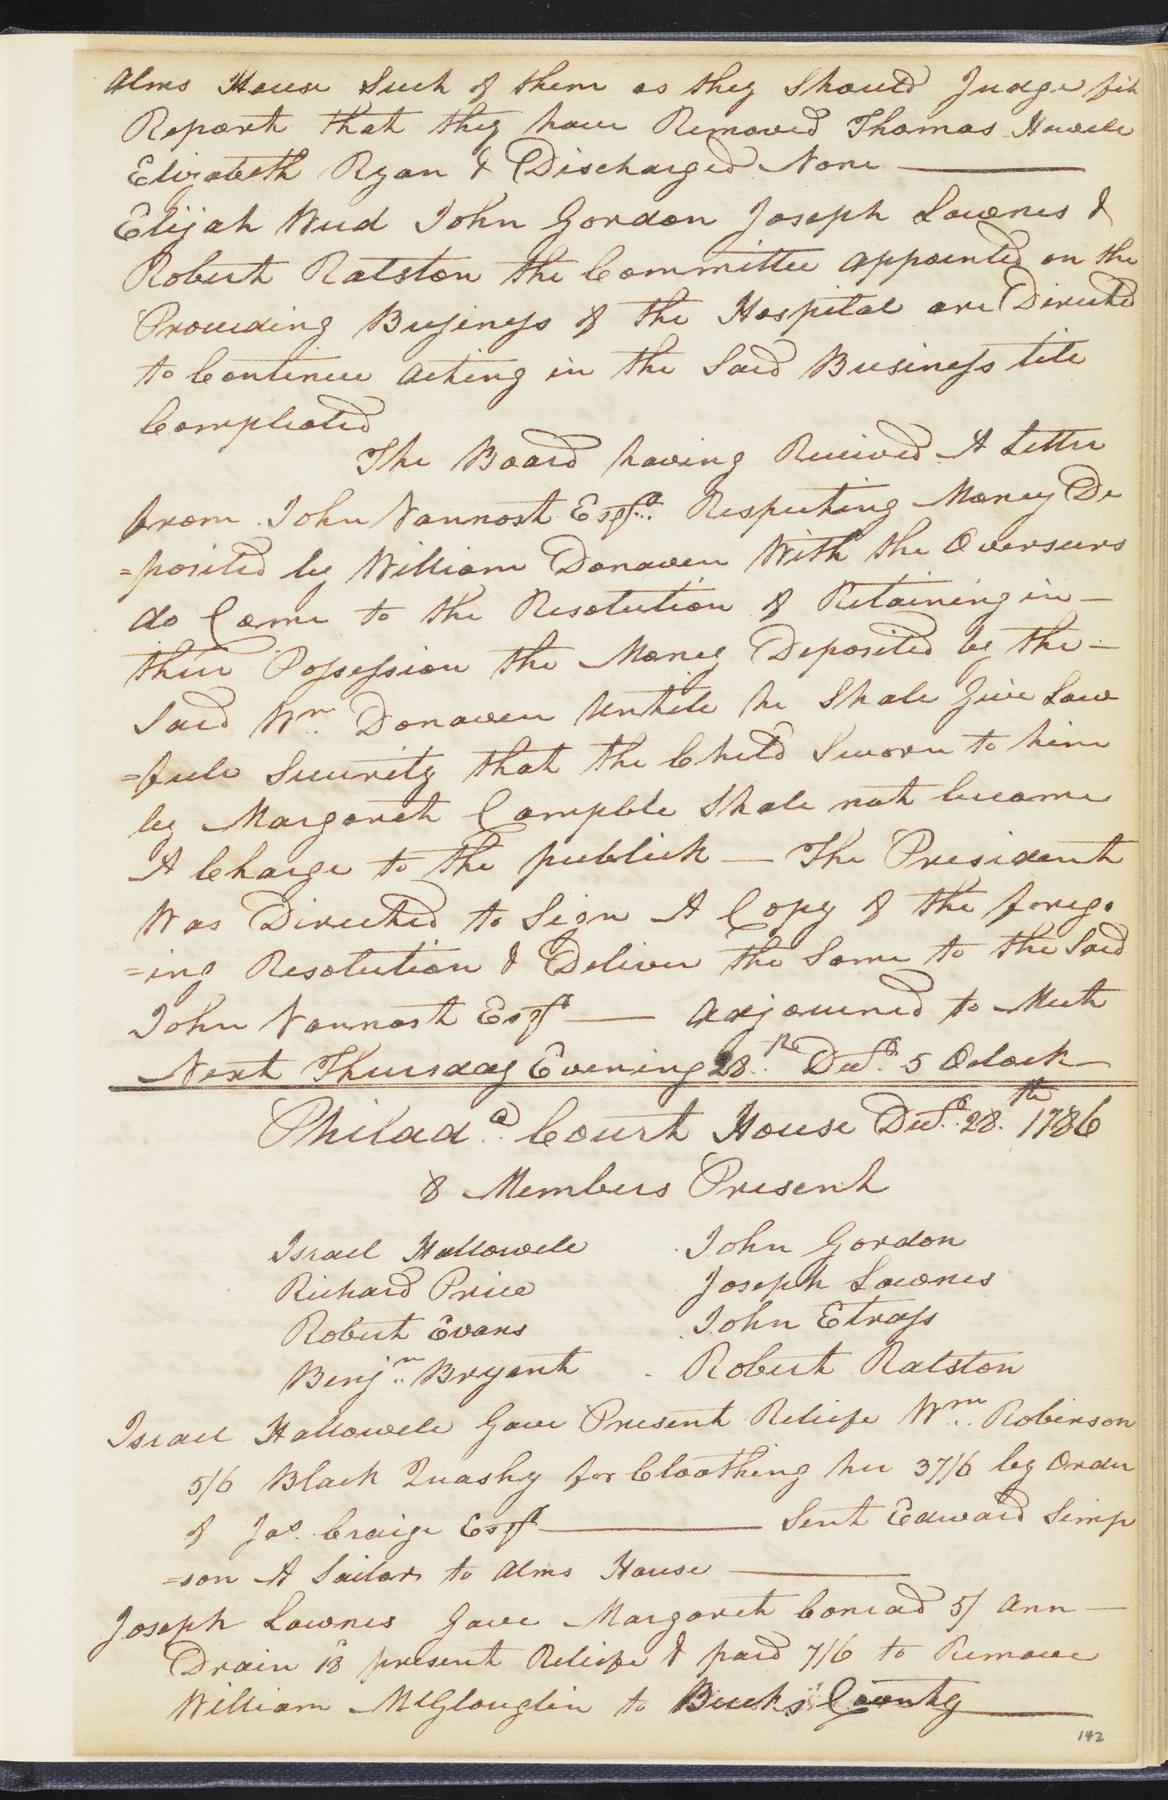 Alms House Such of them as they Should Judge fit
Report that they have Removed Thomas Howell
Elizabeth Ryan & Discharged None
Elijah Weed John Gordon Joseph Lownes &
Robert Ralston the Committee appointed on the
Prouiding Business of the Hospital are Directed
to Continue acting in the Said Business till
Compleated
The Board having Received A Letter
from John Vannost Esqr. Respecting Money De
=posited by William Donaven With the Overseers
do Come to the Resolution of Retaining in
their Possession the Money Deposited by the
Said Wm. Donaven Untill he Shall Give Law
=full Security that the Child Sworn to him
by Margaret Camplle Shall not become
A Charge to the publick — The President
Was Directed to Sign A Copy of the forego
=ing Resolution & Deliver the Same to the Said
John Vannost Esqr — adjourned to Meet
Next Thursday Evening 28th. Decr. 5 Oclock
Philada. Court House Decr. 28th. 1786
8 Members Present
Israel Hallowell John Gordon
Richard Price Joseph Lownes
Robert Evans John Etrass
Benjn. Bryant Robert Ralston
Israel Hallowell Gave Present Reliefe Wm. Robinson
5/6 Black Quashy for Cloothing her 37/6 by Order
of Jas. Craige Esqr — Sent Edward Simp
=son A Sailor to Alms House
Joseph Lownes Gave Margaret Conrad 5/ Ann
Drain 18 present Reliefe & paid 7/6 to Remove
William McGlouglin to Bucks County
142